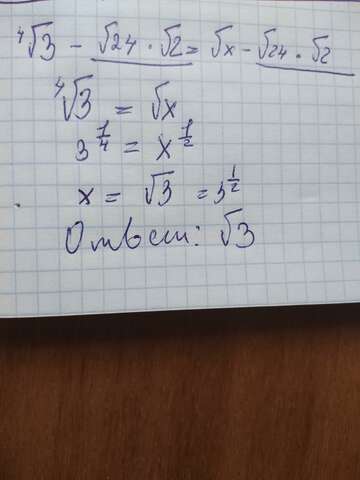 ⁴√3 - √24 · √2 = √x - √24 · √2
⁴√3 = √x
3^(1/4) = x^(1/2)
x = √3 = 3^(1/2)
Ответ: √3